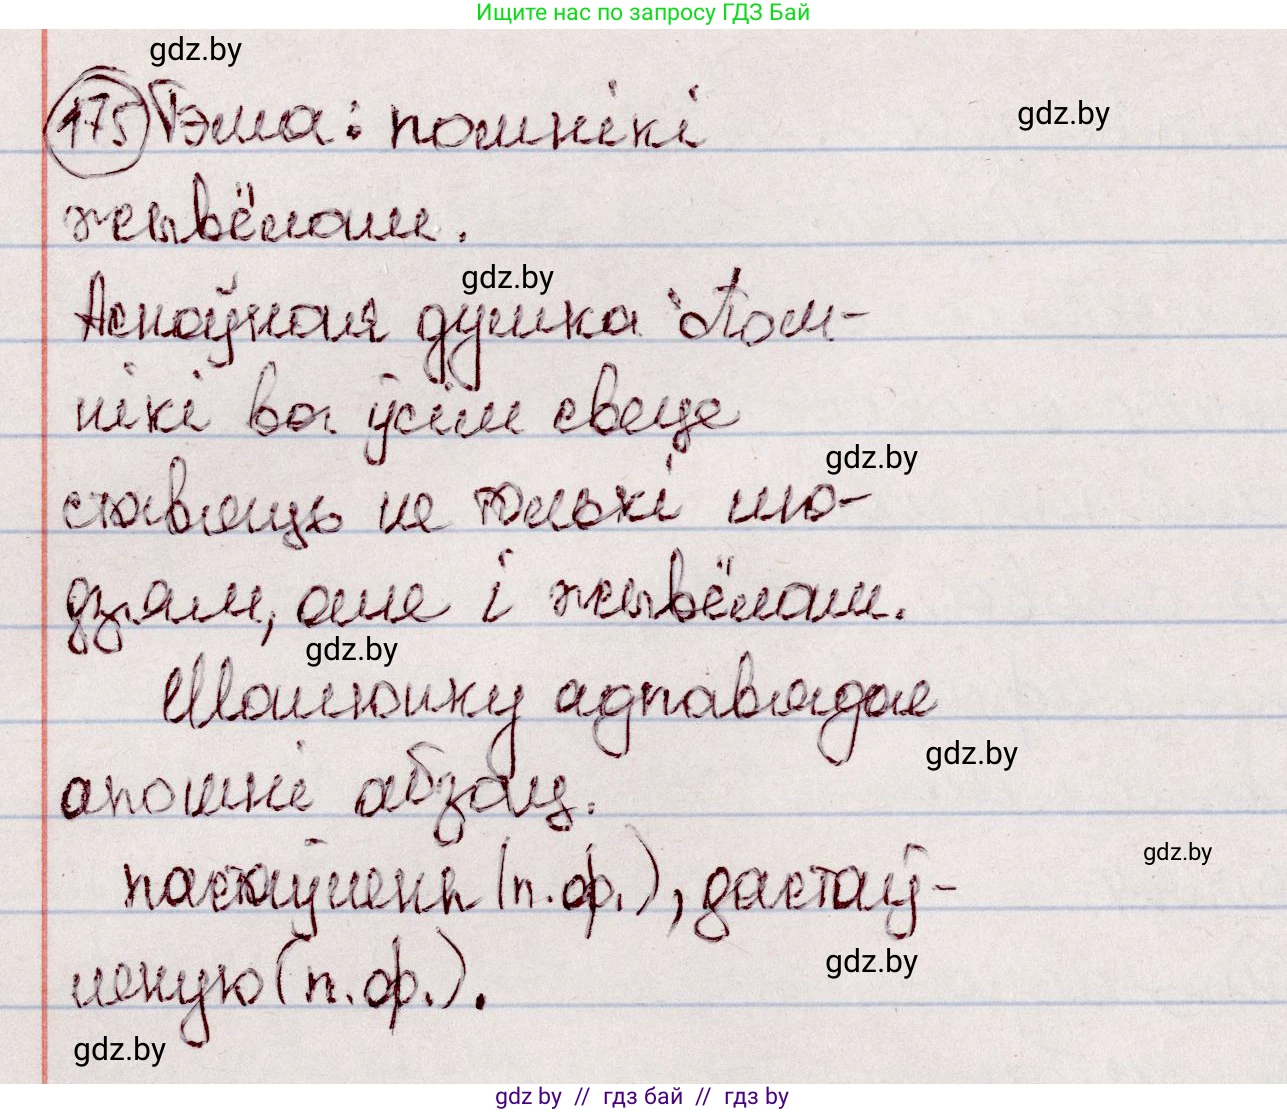 Ищите нас по запросу ГДЗ Бай
gdz.by
175 Тэма: помнікі
gdz.by
жывёлам.
gdz.by
Асноўная думка: Пом-
нікі ва ўсім свеце
gdz.by
ставяць не толькі лю-
дзям, але і жывёлам.
gdz.by
Малюнку адпавядае
gdz.by
апошні абзац.
gdz.by
пастаўлены (п.ф.), дастаў-
gdz.by
леную (п.ф.).
gdz.by
gdz by // гдз бай // гдз by